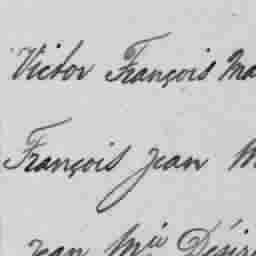 Victor François Ma
François Jean M
Jean Mie Désiré